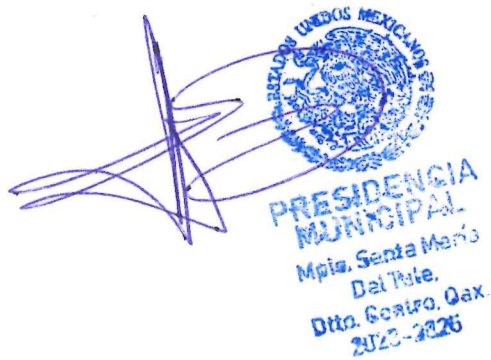 ESTADOS UNIDOS MEXICANOS
PRESIDENCIA
MUNICIPAL
Mpio. Santa María
Del Tule,
Dtto. Centro, Oax.
2023-2026